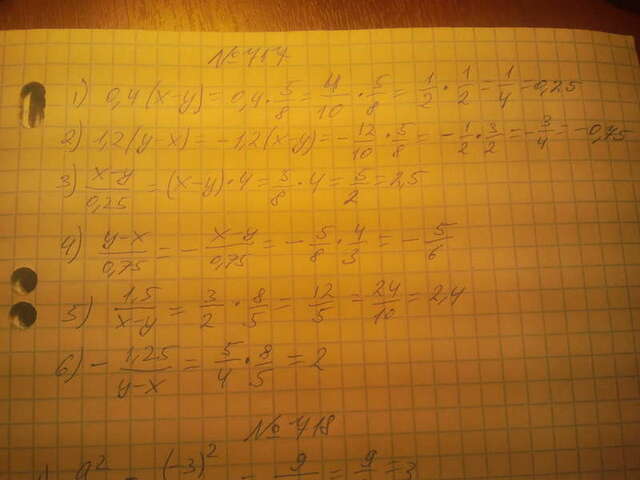 № 717
1) 0,4(x-y) = 0,4 · 5/8 = 4/10 · 5/8 = 1/2 · 1/2 = 1/4 = 0,25
2) 1,2(y-x) = -1,2(x-y) = - 12/10 · 5/8 = - 1/2 · 3/2 = - 3/4 = -0,75
3) (x-y)/0,25 = (x-y) · 4 = 5/8 · 4 = 5/2 = 2,5
4) (y-x)/0,75 = - (x-y)/0,75 = - 5/8 · 4/3 = - 5/6
5) 1,5/(x-y) = 3/2 · 8/5 = 12/5 = 24/10 = 2,4
6) - 1,25/(y-x) = 5/4 · 8/5 = 2
№ 718
a² = (-3)² = 9 = 9 = 3